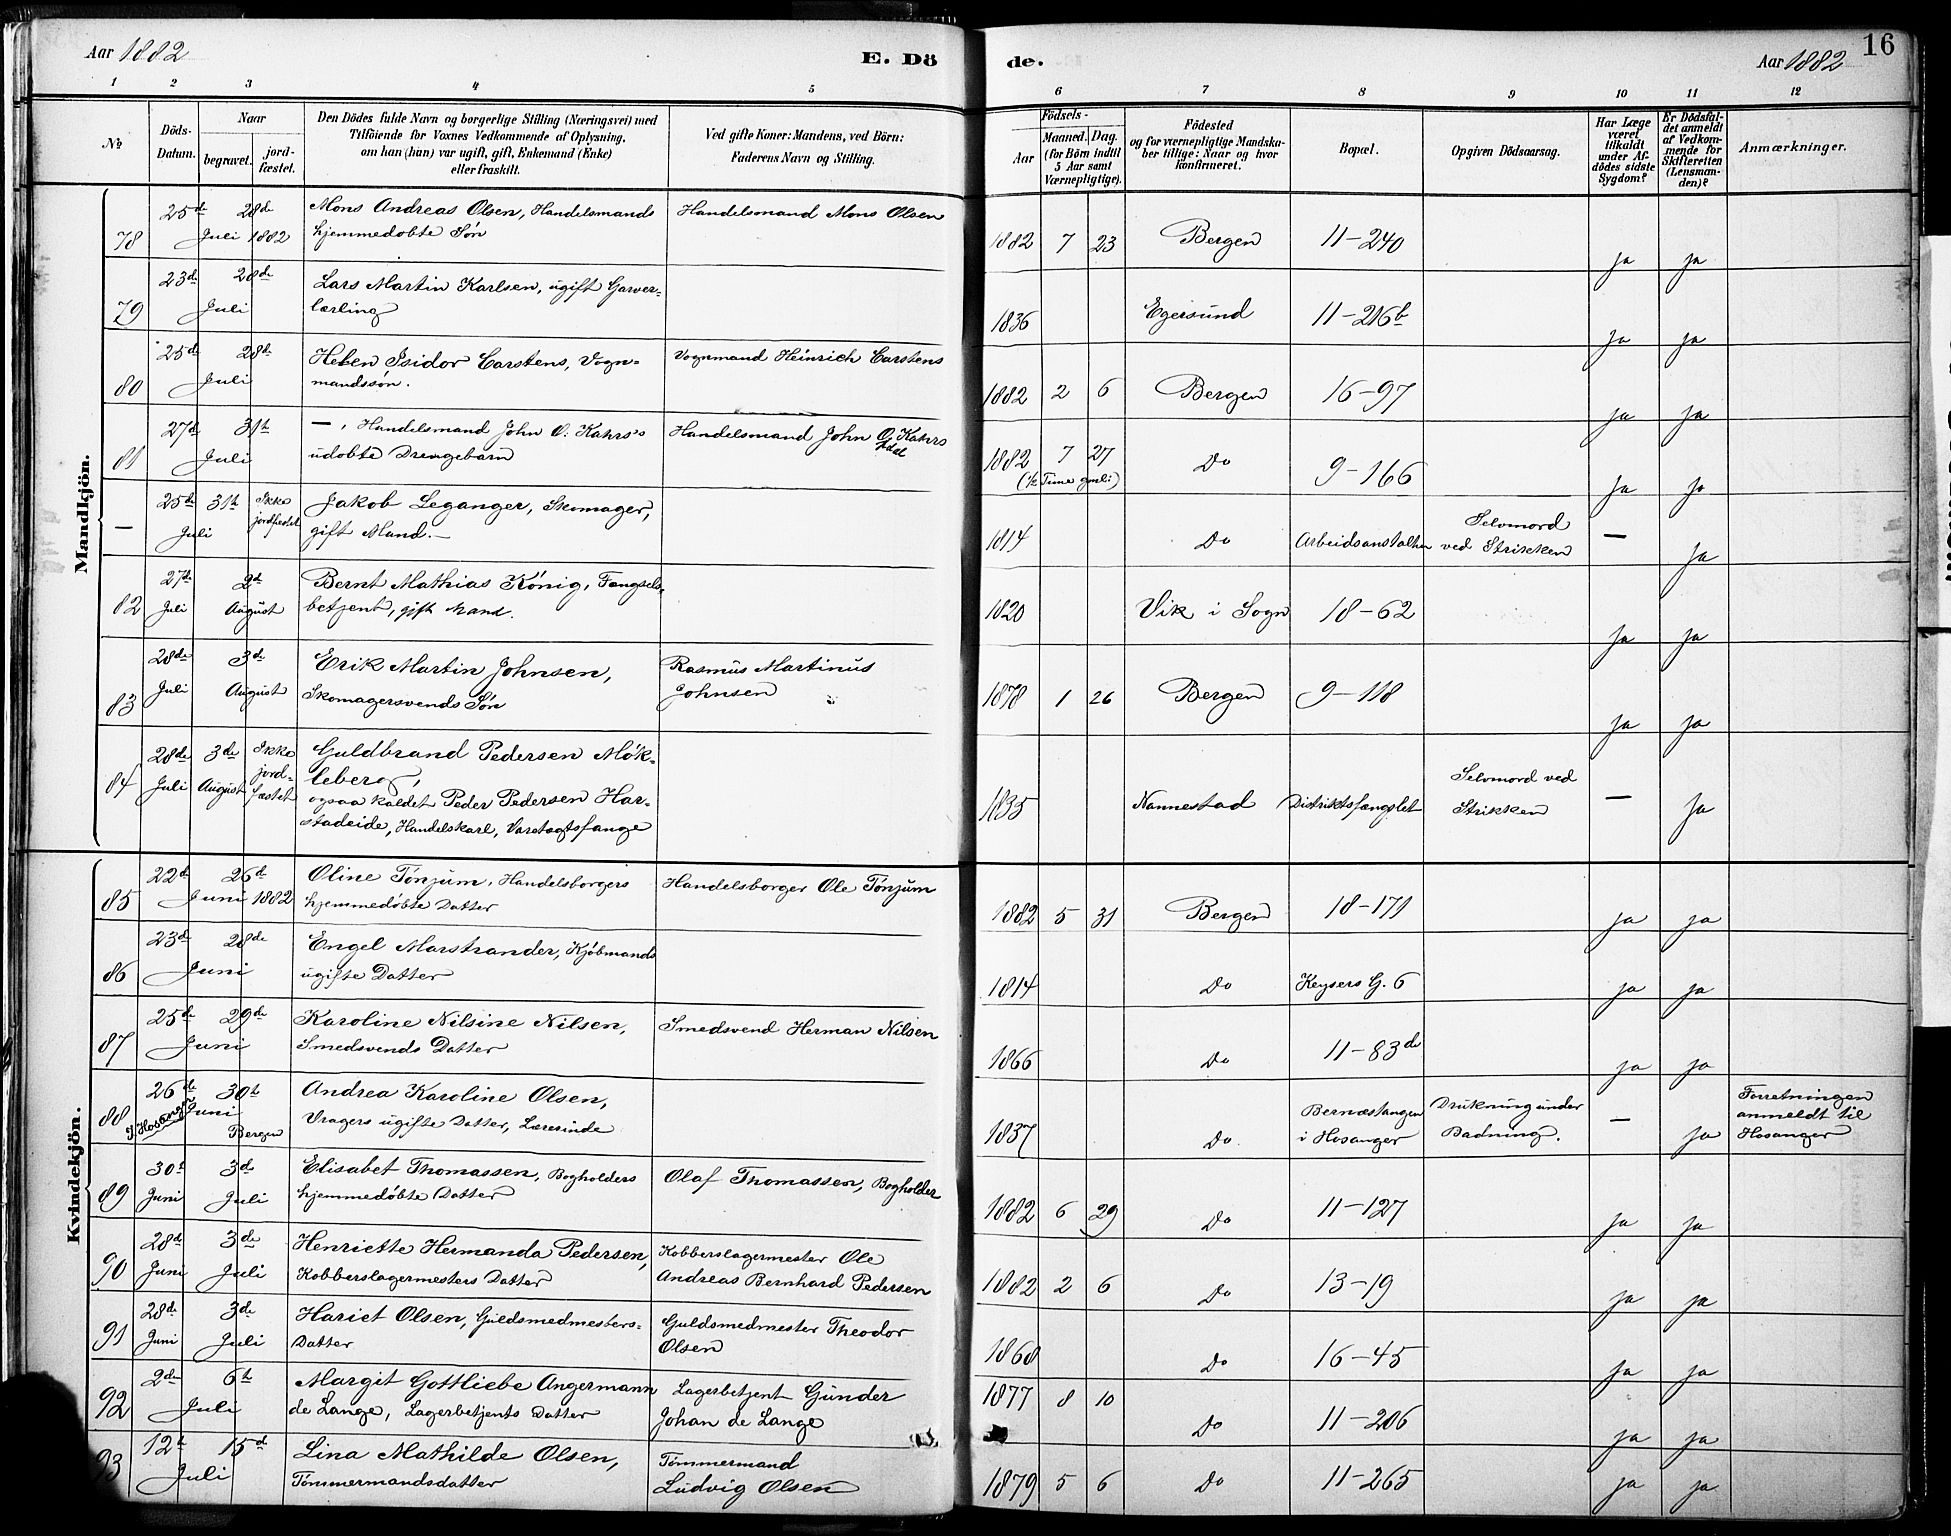 Aar 1882
E. Dö
de.
Aar 1882
16
1 2 3 4 5 6 7 8 9 10 11 12
№
Döds-Datum.
Naar
begravet.
jord-fæstet.
Den Dödes fulde Navn og borgerlige Stilling (Næringsvei) med
Tilföiende for Voxnes Vedkommende af Oplysning,
om han (hun) var ugift, gift, Enkemand (Enke)
eller fraskilt.
Ved gifte Koner: Mandens, ved Börn:
Faderens Navn og Stilling.
Födsels-
Aar
Maaned. Dag.
(for Börn indtil
5 Aar samt
Værnepligtige).
Födested
og for værnepligtige Mandska-
ber tillige: Naar og hvor
konfirmeret.
Bopæl.
Opgiven Dödsaarsag.
Har Læge
været
tilkaldt
under Af-
dödes sidste
Sygdom?
Er Dödsfal-
det anmeldt
af Vedkom-
mende for
Skifteretten
(Lensman-
den)?
Anmærkninger.
Mandkjön.
78 25de 28de Mons Andreas Olsen, Handelsmands Handelsmand Mons Olsen
Juli 1882 hjemmedøbte Søn
1882 7 23 Bergen 11-240 Ja Ja
79 23de 28de Lars Martin Karlsen, ugift Garver-
Juli lærling
1836 Egersund 11-216b Ja Ja
80 25de 28de Isidor Carstens, Vogn- Vognmand Heinrich Carstens
Juli mandssøn.
1882 2 6 Bergen 16-97 Ja Ja
81 27de 31te —, Handelsmand John O. Kahrs's Handelsmand John O. Kahrs
Juli udøbte Drengebarn
1882 7 27 Do 9-166 Ja Ja
(½ Time gml:)
— 25de 31te Ikke Jakob Leganger, Skomager,
Juli jordfæstet gift Mand.—
1814 Do Arbeidsanstalten Selvmord
ved Strikken — Ja
82 27de 2d Bernt Mathias König, Fængsels-
Juli August betjent, gift Mand.
1820 Vik i Sogn 18-62 Ja Ja
83 28de 3de Erik Martin Johnsen, Rasmus Martinus
Juli August Skomagersvends Søn Johnsen
1878 1 26 Bergen 9-118 Ja Ja
84 28de 3de Ikke Guldbrand Pedersen Møk-
Juli August jord- leberg,
fæstet ogsaa kaldet Peder Pedersen Har-
stadeide, Handelskarl, Varetægtsfange
1835 Nannestad Distriktsfængslet Selvmord ved
Strikken — Ja
Kvindekjön.
85 22d 26d Oline Tønjum, Handelsborgers Handelsborger Ole Tønjum
Juni 1882 hjemmedøbte Datter
1882 5 31 Bergen 18-171 Ja Ja
86 23de 28de Engel Marstrander, Kjøbmands
Juni ugifte Datter
1814 Do Keysers G. 6 Ja Ja
87 25de 29de Karoline Nilsine Nilsen, Smedsvend Herman Nilsen
Juni Smedsvends Datter
1866 Do 11-83de Ja Ja
88 26de 30te Andrea Karoline Olsen,
I Hosanger Juni Bergen Vragers ugifte Datter, Lærerinde
1837 Do Bernæstangen
i Hosanger Drukning under
Badning. — Ja Forretningen
anmeldt til
Hosanger
89 30t 3de Elisabet Thomassen, Bogholders Olaf Thomassen, Bogholder
Juni Juli hjemmedøbte Datter
1882 6 29 Do 11-127 Ja Ja
90 28d 3de Henriette Hermanda Pedersen, Kobberslagermester Ole
Juni Juli Kobberslagermesters Datter Andreas Bernhard Pedersen
1882 2 6 Do 13-19 Ja Ja
91 28de 3de Hariet Olsen, Guldsmedmesters- Guldsmedmester Theodor
Juni Juli Datter Olsen
1868 Do 16-45 Ja Ja
92 2de 6te Margit Gottliebe Angermann Lagerbetjent Gunder
Juli de Lange, Lagerbetjents Datter Johan de Lange
1877 8 10 Do 11-206 Ja Ja
93 12t 15d Lina Mathilde Olsen, Tømmermand
Juli Tømmermandsdatter Ludvig Olsen
1879 5 6 Do 11-265 Ja Ja